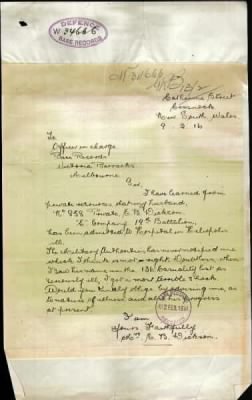 DEFENCE
W 34666
BASE RECORDS
Catherine Street
New South Wales
9 . 2 . 16
To
Officer in charge
Base Records
Victoria Barracks
Melbourne
Sir
I have learned from
private sources that my husband,
No 858 Private, C. B. Dickson.
"C" Company 19th Battalion,
has been admitted to Hospital in Heliopolis
ill.
The Military Authorities have not notified me
which I think is not right. Doubtless, when
I saw his name in the 131 Casualty list as
seriously ill, I got a most terrible shock.
Would you kindly oblige by advising me, as
to nature of illness and also his progress
at present.
I am
Yours Faithfully
C. B. Dickson.